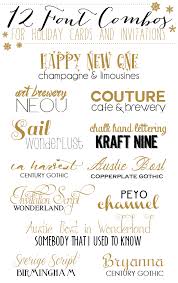 12 Font Combos
FOR HOLIDAY CARDS AND INVITATIONS
HAPPY NEW ONE
champagne & limousines
art brewery
NEOU
COUTURE
cafe & brewery
Sail
wonderlust
chalk hand lettering
KRAFT NINE
ea harvest
CENTURY GOTHIC
Austie Bost
COPPERPLATE GOTHIC
Invitation Script
WONDERLAND
PEYO
channel
Austie Bost in Wonderland
SOMEBODY THAT I USED TO KNOW
George Script
BIRMINGHAM
Bryanna
CENTURY GOTHIC